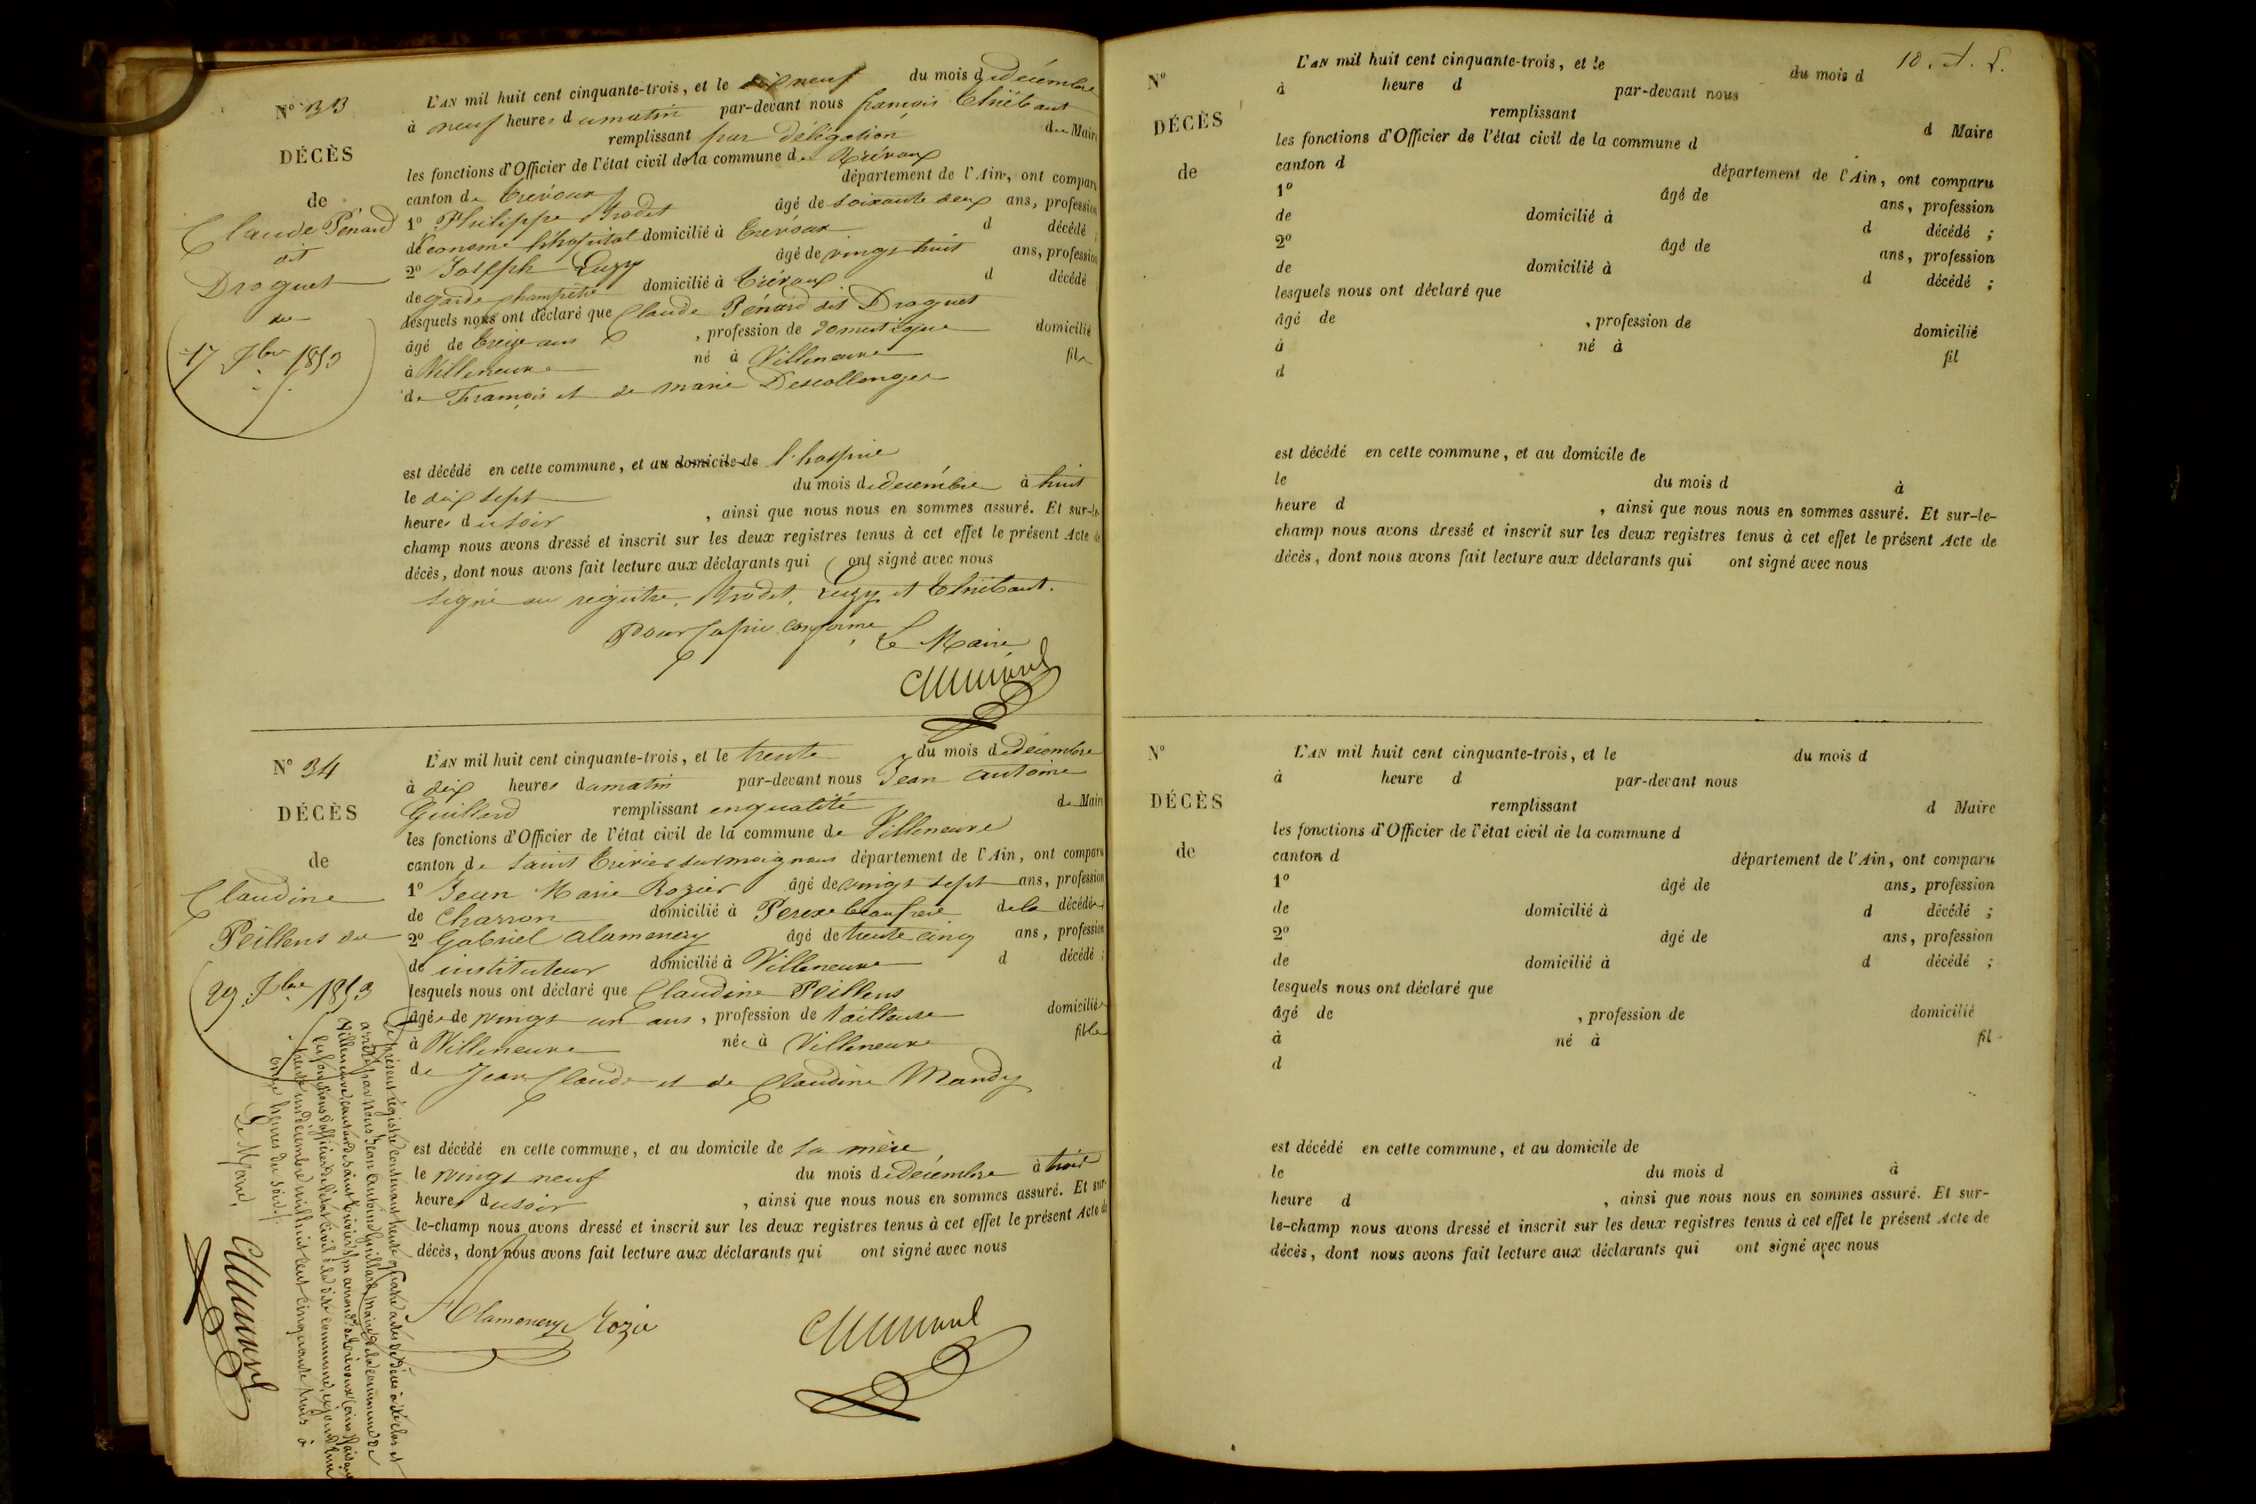 N° 33
DÉCÈS
de
Claude Pénard
dit
Droguet
du
17 Xbre 1853
L'AN mil huit cent cinquante-trois, et le dix neuf du mois de décembre
à neuf heures du matin par-devant nous françois Thiébaut
remplissant par délégation du Maire
les fonctions d'Officier de l'état civil de la commune de Trévoux
canton de Trévoux département de l'Ain, ont comparu
1° Philippe Trodet âgé de soixante deux ans, profession
d'Econome de l'hôpital domicilié à Trévoux d décédé ;
2° Joseph Luzy âgé de vingt huit ans, profession
de garde champêtre domicilié à Trévoux d décédé
lesquels nous ont déclaré que Claude Pénard dit Droguet
âgé de treize ans , profession de domestique domicilié
à Villeneuve né à Villeneuve fils
de François et de marie Descollonges
est décédé en cette commune, et au domicile de l'hospice
le dix sept du mois de décembre à huit
heures du soir , ainsi que nous nous en sommes assuré. Et sur-le-
champ nous avons dressé et inscrit sur les deux registres tenus à cet effet le présent Acte de
décès, dont nous avons fait lecture aux déclarants qui ont signé avec nous
signé au registre, Trodet, Luzy et Thiébaut.
Pour copie conforme
Le Maire
N° 34
DÉCÈS
de
Claudine
Peillens du
29 Xbre 1853
L'AN mil huit cent cinquante-trois, et le trente du mois de décembre
à dix heures du matin par-devant nous Jean antoine
Guillard remplissant en qualité de Maire
les fonctions d'Officier de l'état civil de la commune de Villeneuve
canton de Saint Trivier sur moignans département de l'Ain, ont comparu
1° Jean Marie Rozier âgé de vingt sept ans, profession
de Charron domicilié à beaufrère de la décédée
2° Gabriel alamenery âgé de trente cinq ans, profession
de instituteur domicilié à Villeneuve d décédé ;
lesquels nous ont déclaré que Claudine Peillens
âgée de vingt un ans , profession de tailleuse domiciliée
à Villeneuve née à Villeneuve fille
de Jean Claude et de Claudine Mandy
est décédé en cette commune, et au domicile de sa mère
le vingt neuf du mois de décembre à trois
heures du soir , ainsi que nous nous en sommes assuré. Et sur-
le-champ nous avons dressé et inscrit sur les deux registres tenus à cet effet le présent Acte de
décès, dont nous avons fait lecture aux déclarants qui ont signé avec nous
Alamenery Rozier
Le présent registre contenant trente quatre actes de décès a été clos et
arrêté par nous Jean Antoine Guillard, Maire de la commune de
Villeneuve, canton de Saint Trivier s/m arrondt de Trévoux (ain) faisant
les fonctions d'officier de l'état civil de la dite commune, ce jourd'hui
trente un décembre mil huit cent cinquante trois à
onze heures du soir.
Le Maire,
L'AN mil huit cent cinquante-trois, et le du mois d
N°
DÉCÈS
de
à heure d par-devant nous
remplissant d Maire
les fonctions d'Officier de l'état civil de la commune d
canton d département de l'Ain, ont comparu
1° âgé de ans, profession
de domicilié à d décédé ;
2° âgé de ans, profession
de domicilié à d décédé ;
lesquels nous ont déclaré que
âgé de , profession de domicilié
à né à fil
d
est décédé en cette commune, et au domicile de
le du mois d à
heure d , ainsi que nous nous en sommes assuré. Et sur-le-
champ nous avons dressé et inscrit sur les deux registres tenus à cet effet le présent Acte de
décès, dont nous avons fait lecture aux déclarants qui ont signé avec nous
N°
DÉCÈS
de
L'AN mil huit cent cinquante-trois, et le du mois d
à heure d par-devant nous
remplissant d Maire
les fonctions d'Officier de l'état civil de la commune d
canton d département de l'Ain, ont comparu
1° âgé de ans, profession
de domicilié à d décédé ;
2° âgé de ans, profession
de domicilié à d décédé ;
lesquels nous ont déclaré que
âgé de , profession de domicilié
à né à fil
d
est décédé en cette commune, et au domicile de
le du mois d à
heure d , ainsi que nous nous en sommes assuré. Et sur-
le-champ nous avons dressé et inscrit sur les deux registres tenus à cet effet le présent Acte de
décès, dont nous avons fait lecture aux déclarants qui ont signé avec nous